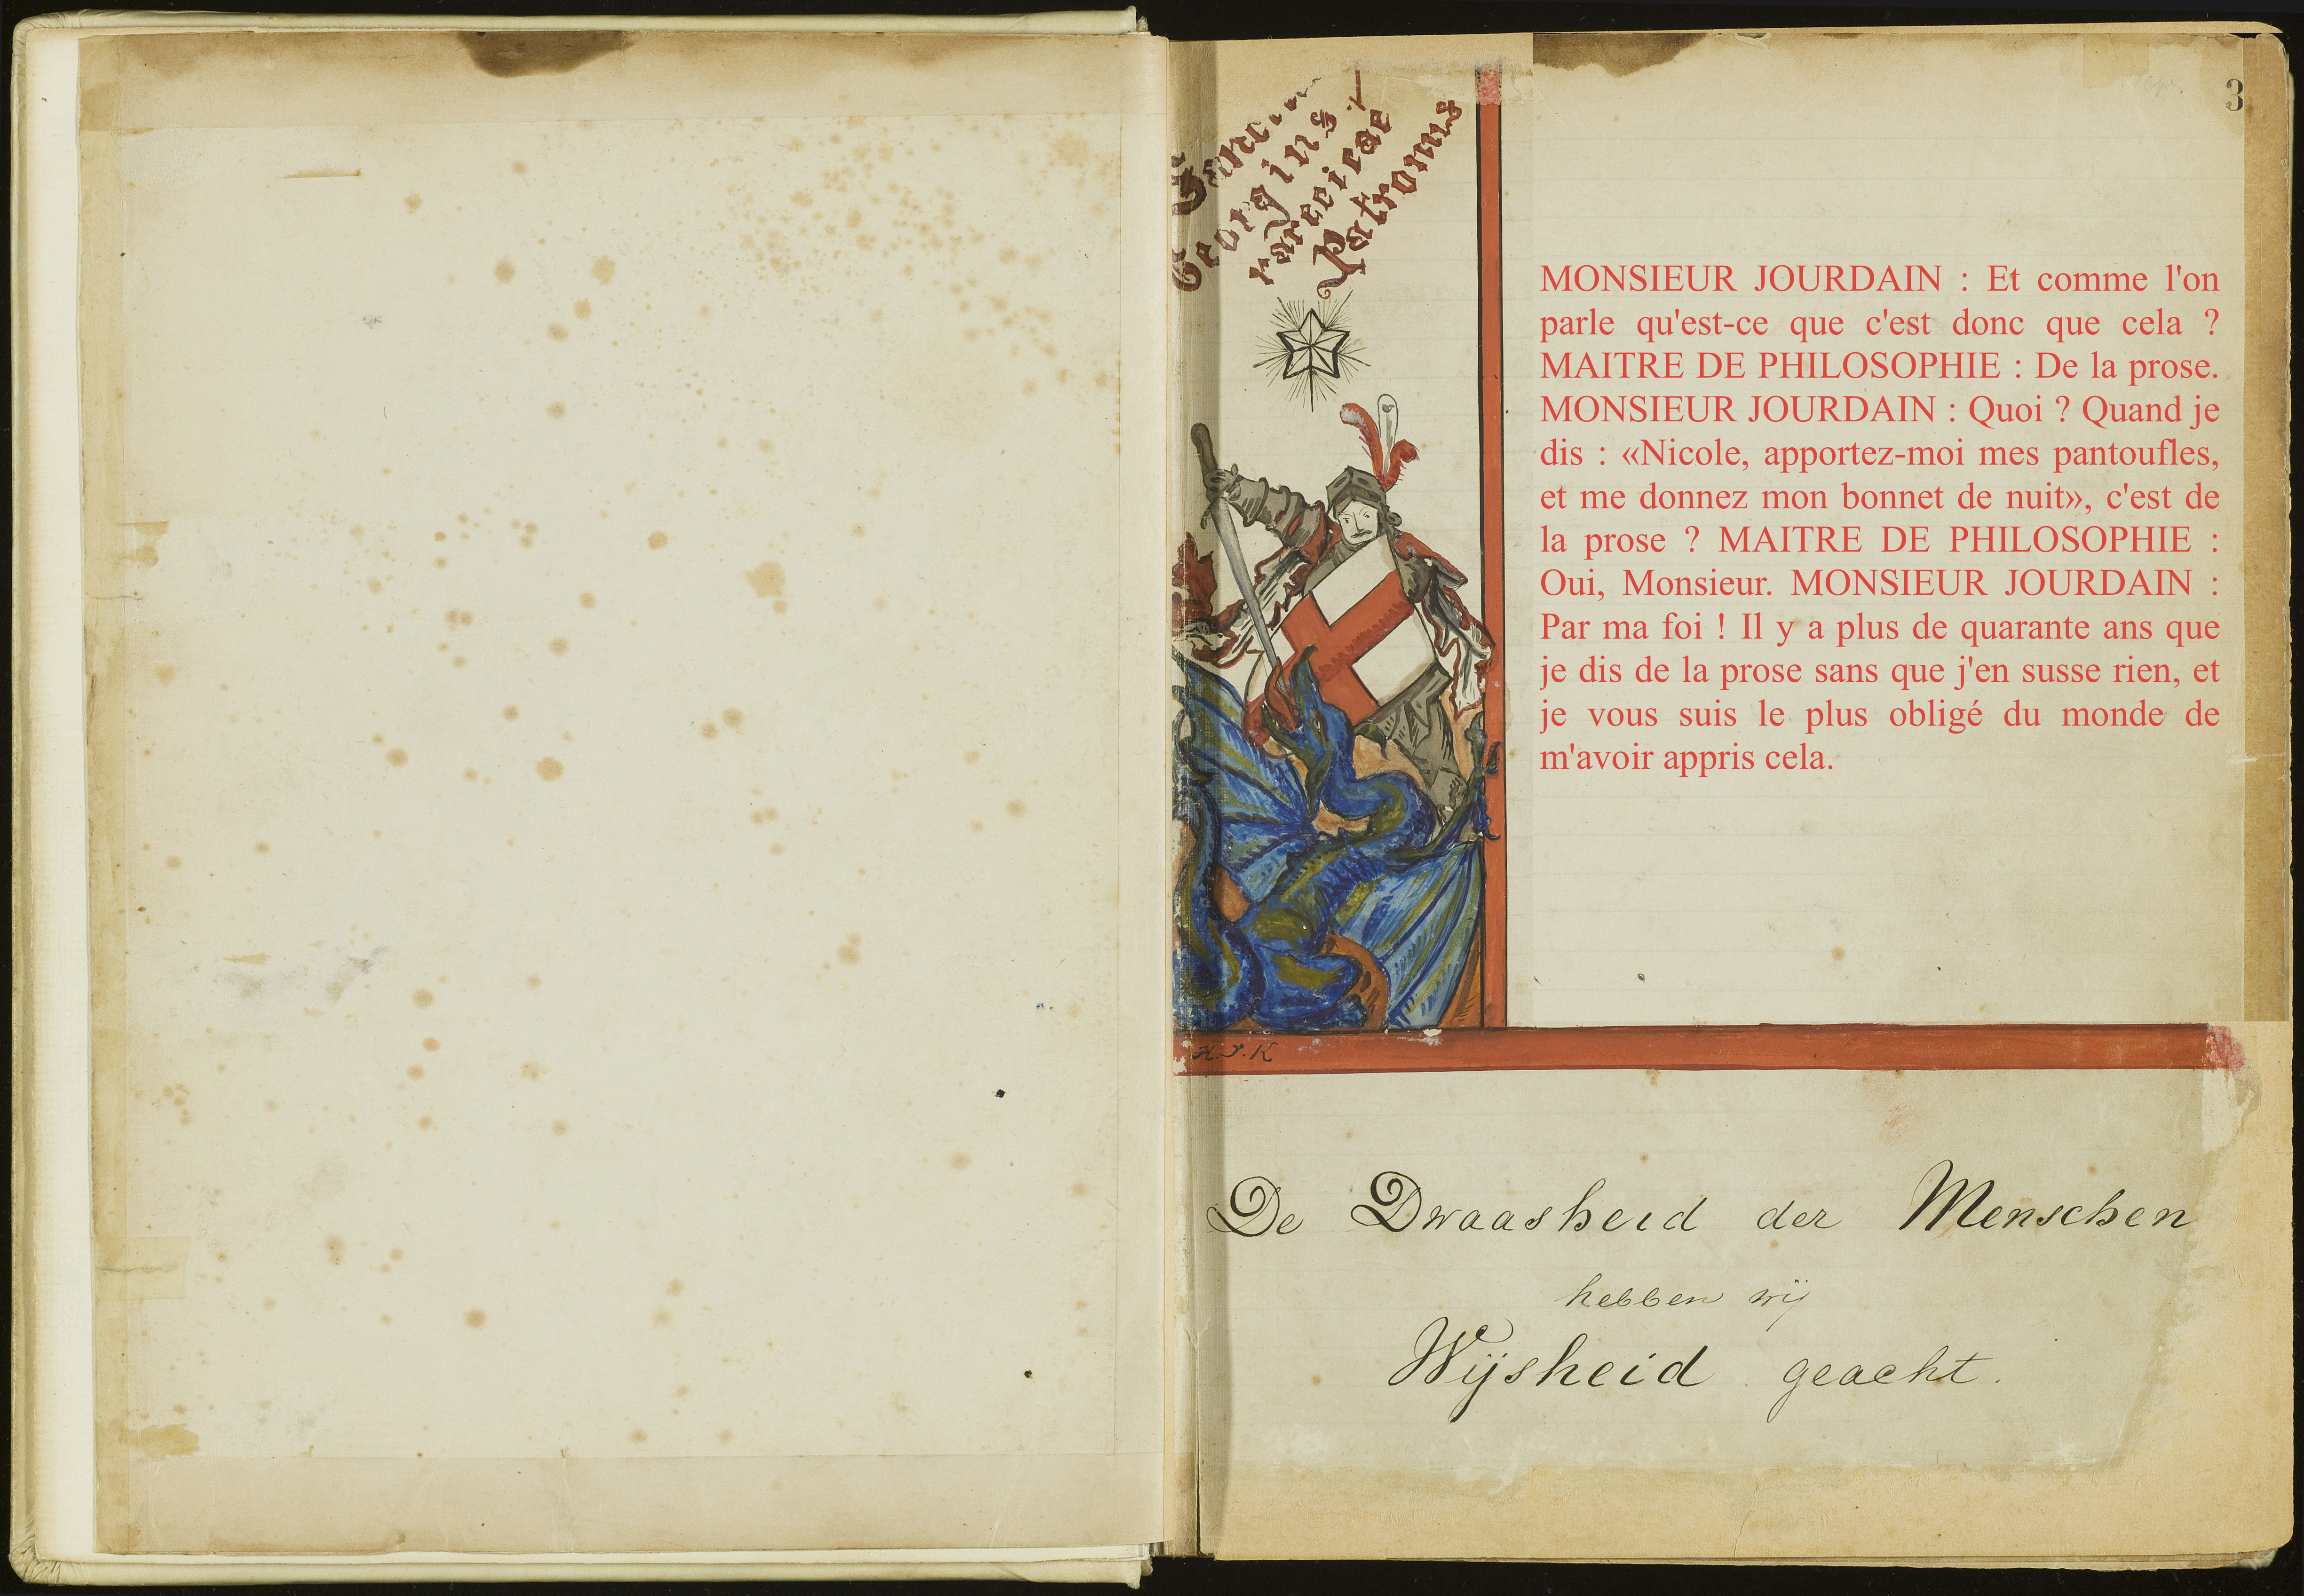 3
Georgius
Patronus
MONSIEUR JOURDAIN : Et comme l'on
parle qu'est-ce que c'est donc que cela ?
MAITRE DE PHILOSOPHIE : De la prose.
MONSIEUR JOURDAIN : Quoi ? Quand je
dis : «Nicole, apportez-moi mes pantoufles,
et me donnez mon bonnet de nuit», c'est de
la prose ? MAITRE DE PHILOSOPHIE :
Oui, Monsieur. MONSIEUR JOURDAIN :
Par ma foi ! Il y a plus de quarante ans que
je dis de la prose sans que j'en susse rien, et
je vous suis le plus obligé du monde de
m'avoir appris cela.
H.J.K
De Dwaasheid der Menschen
hebben wij
Wijsheid geacht.